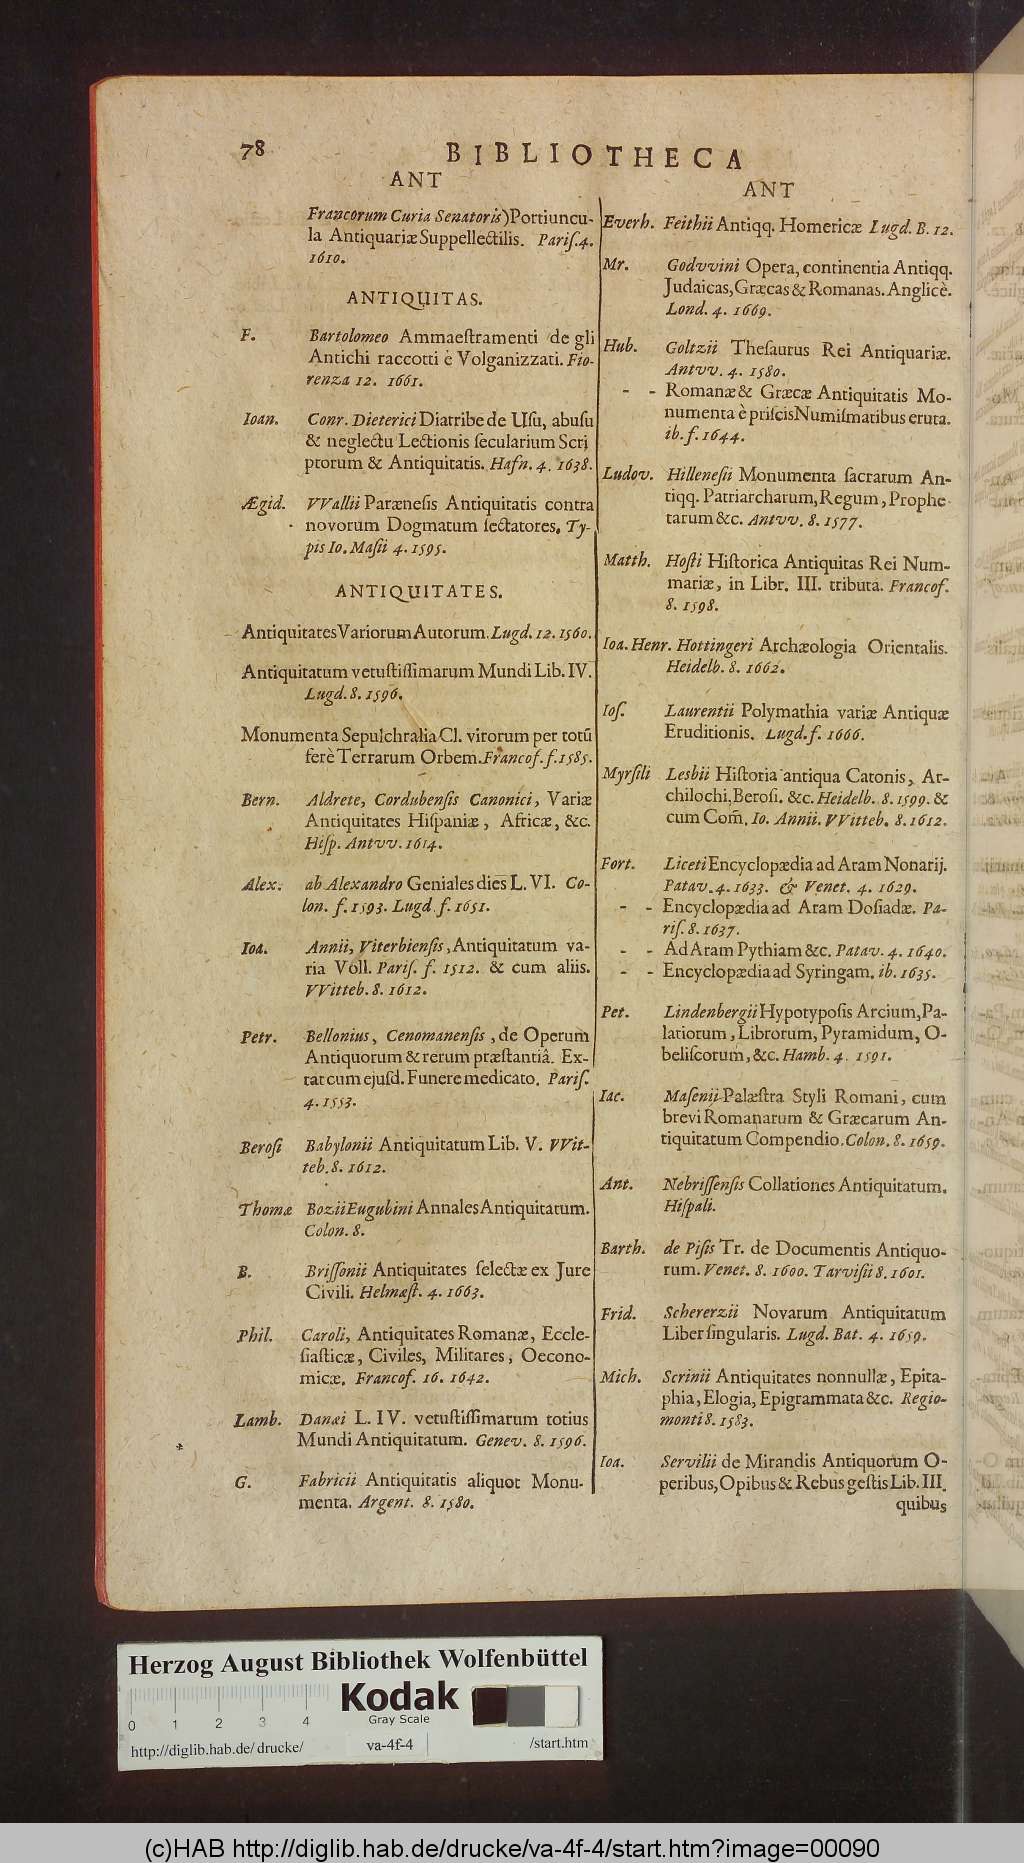 78
BIBLIOTHECA
ANT
Francorum Curia Senatoris)Portiuncu-
la Antiquariæ Suppellectilis. Pariſ. 4.
1610.
ANTIQUITAS.
F. Bartolomeo Ammaeſtramenti de gli
Antichi raccotti è Volganizzati. Fio-
renza 12. 1661.
Ioan. Conr. Dieterici Diatribe de Uſu, abuſu
& neglectu Lectionis ſecularium Scri
ptorum & Antiquitatis. Hafn. 4. 1638.
Ægid. VVallii Parænesis Antiquitatis contra
novorum Dogmatum ſectatores. Ty-
pis Io. Maſii 4. 1595.
ANTIQUITATES.
Antiquitates Variorum Autorum. Lugd. 12. 1560.
Antiquitatum vetuſtiſſimarum Mundi Lib. IV.
Lugd. 8. 1596.
Monumenta Sepulchralia Cl. virorum per totū
ferè Terrarum Orbem. Francof. f. 1585.
Bern. Aldrete, Cordubenſis Canonici, Variæ
Antiquitates Hiſpaniæ, Africæ, &c.
Hiſp. Antvv. 1614.
Alex. ab Alexandro Geniales dies L. VI. Co-
lon. f. 1593. Lugd. f. 1651.
Ioa. Annii, Viterbienſis, Antiquitatum va-
ria Voll. Pariſ. f. 1512. & cum aliis.
VVitteb. 8. 1612.
Petr. Bellonius, Cenomanenſis, de Operum
Antiquorum & rerum præſtantiâ. Ex-
tat cum ejuſd. Funere medicato. Pariſ.
4. 1553.
Beroſi Babylonii Antiquitatum Lib. V. VVit-
teb. 8. 1612.
Thomæ Bozii Eugubini Annales Antiquitatum.
Colon. 8.
B. Briſſonii Antiquitates ſelectæ ex Jure
Civili. Helmæſt. 4. 1663.
Phil. Caroli, Antiquitates Romanæ, Eccle-
ſiaſticæ, Civiles, Militares, Oecono-
micæ. Francof. 16. 1642.
Lamb. Danæi L. IV. vetuſtiſſimarum totius
Mundi Antiquitatum. Genev. 8. 1596.
G. Fabricii Antiquitatis aliquot Monu-
menta. Argent. 8. 1580.
ANT
Everh. Feithii Antiqq. Homericæ Lugd. B. 12.
Mr. Godvvini Opera, continentia Antiqq.
Judaicas, Græcas & Romanas. Anglicè.
Lond. 4. 1669.
Hub. Goltzii Theſaurus Rei Antiquariæ.
Antvv. 4. 1580.
- - Romanæ & Græcæ Antiquitatis Mo-
numenta è priſcis Numiſmatibus eruta.
ib. f. 1644.
Ludov. Hilleneſii Monumenta ſacrarum An-
tiqq. Patriarcharum, Regum, Prophe
tarum &c. Antvv. 8. 1577.
Matth. Hoſti Hiſtorica Antiquitas Rei Num-
mariæ, in Libr. III. tributa. Francof.
8. 1598.
Ioa. Henr. Hottingeri Archæologia Orientalis.
Heidelb. 8. 1662.
Ioſ. Laurentii Polymathia variæ Antiquæ
Eruditionis. Lugd. f. 1666.
Myrſili Lesbii Hiſtoria antiqua Catonis, Ar-
chilochi, Beroſi. &c. Heidelb. 8. 1599. &
cum Com̃. Io. Annii. VVitteb. 8. 1612.
Fort. Liceti Encyclopædia ad Aram Nonarij.
Patav. 4. 1633. & Venet. 4. 1629.
- - Encyclopædia ad Aram Doſiadæ. Pa-
riſ. 8. 1637.
- - Ad Aram Pythiam &c. Patav. 4. 1640.
- - Encyclopædia ad Syringam. ib. 1635.
Pet. Lindenbergii Hypotypoſis Arcium, Pa-
latiorum, Librorum, Pyramidum, O-
beliſcorum, &c. Hamb. 4. 1591.
Iac. Maſenii Palæſtra Styli Romani, cum
brevi Romanarum & Græcarum An-
tiquitatum Compendio. Colon. 8. 1659.
Ant. Nebriſſenſis Collationes Antiquitatum.
Hiſpali.
Barth. de Piſis Tr. de Documentis Antiquo-
rum. Venet. 8. 1600. Tarviſii 8. 1601.
Frid. Schererzii Novarum Antiquitatum
Liber ſingularis. Lugd. Bat. 4. 1659.
Mich. Scrinii Antiquitates nonnullæ, Epita-
phia, Elogia, Epigrammata &c. Regio-
monti 8. 1583.
Ioa. Servilii de Mirandis Antiquorum O-
peribus, Opibus & Rebus geſtis Lib. III.
quibus
Herzog August Bibliothek Wolfenbüttel
Kodak
Gray Scale
0 1 2 3 4
http://diglib.hab.de/drucke/ va-4f-4 /start.htm
(c)HAB http://diglib.hab.de/drucke/va-4f-4/start.htm?image=00090